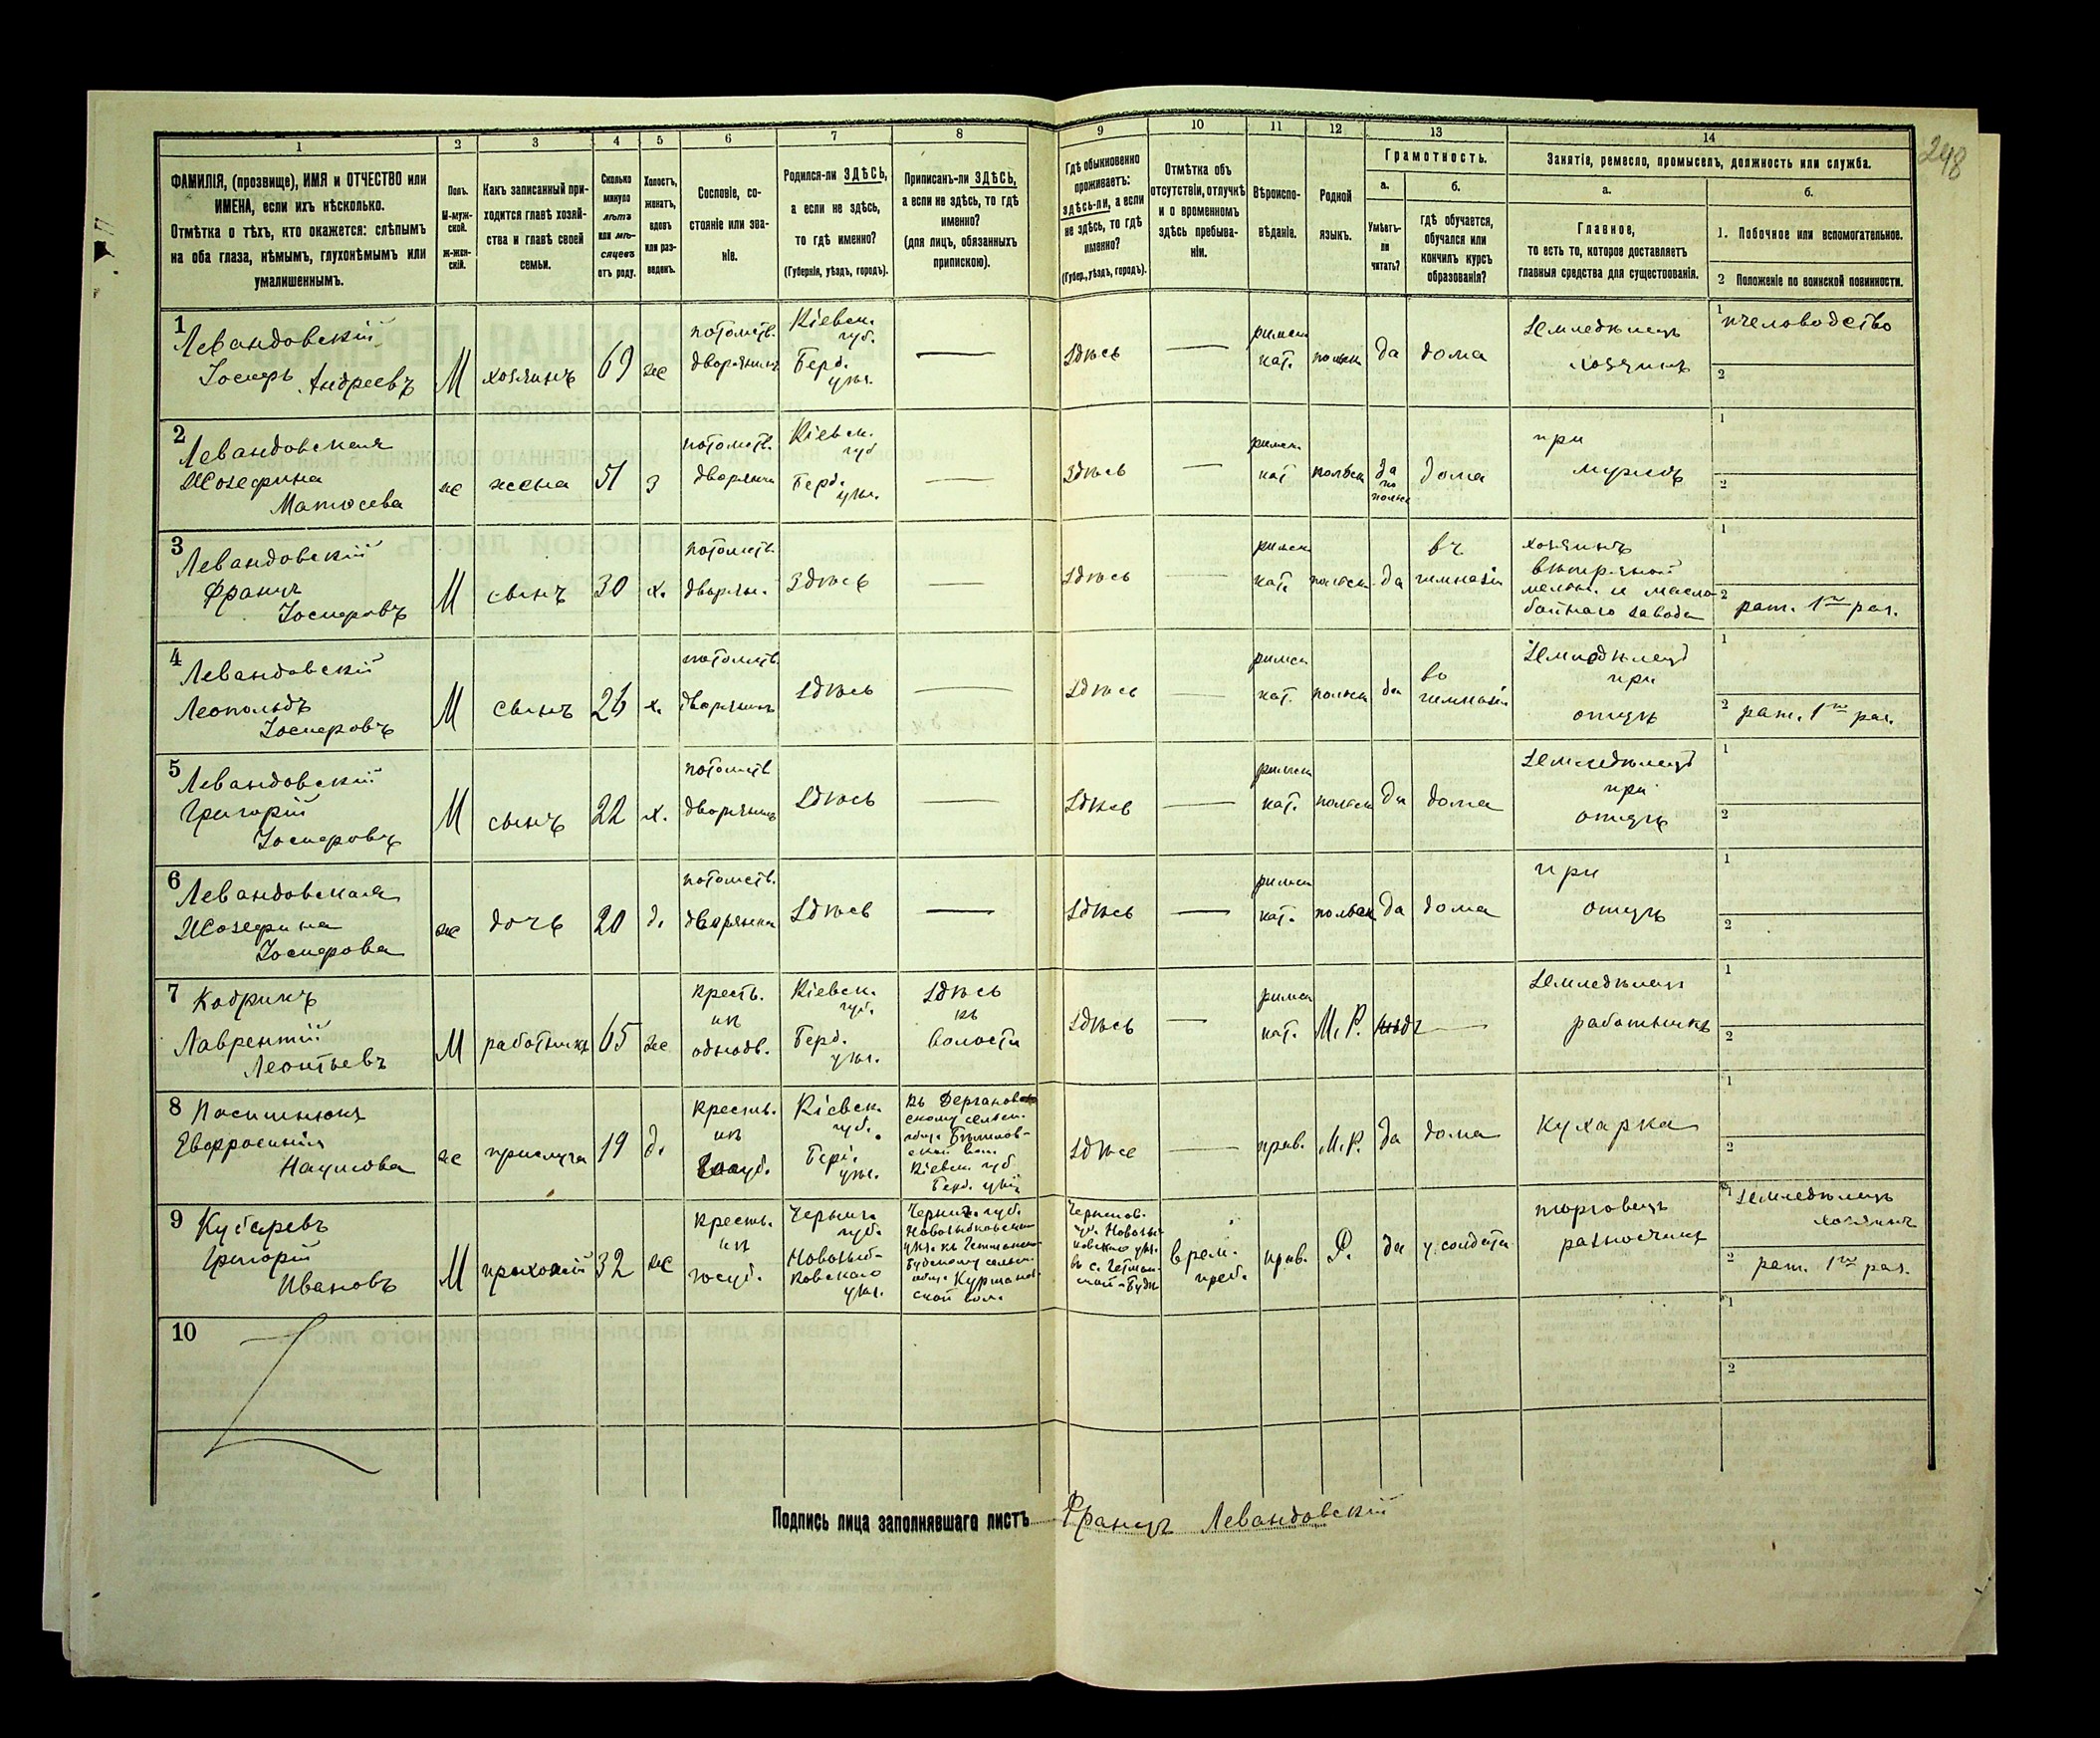 248
1 2 3 4 5 6 7 8 9 10 11 12 13 14
ФАМИЛІЯ, (прозвище), ИМЯ и ОТЧЕСТВО или
ИМЕНА, если ихъ нѣсколько.
Отмѣтка о тѣхъ, кто окажется: слѣпымъ
на оба глаза, нѣмымъ, глухонѣмымъ или
умалишеннымъ.
Полъ.
М-муж-
ской.
Ж-жен-
скій.
Какъ записанный при-
ходится главѣ хозяй-
ства и главѣ своей
семьи.
Сколько
минуло
лѣтъ
или мѣ-
сяцевъ
отъ роду.
Холостъ,
женатъ,
вдовъ
или раз-
веденъ.
Сословіе, со-
стояніе или зва-
ніе.
Родился-ли ЗДѢСЬ,
а если не здѣсь,
то гдѣ именно?
(Губернія, уѣздъ, городъ).
Приписанъ-ли ЗДѢСЬ,
а если не здѣсь, то гдѣ
именно?
(для лицъ, обязанныхъ
припискою).
Гдѣ обыкновенно
проживаетъ:
здѣсь-ли, а если
не здѣсь, то гдѣ
именно?
(Губер., уѣздъ, городъ).
Отмѣтка объ
отсутствіи, отлучкѣ
и о временномъ
здѣсь пребыва-
ніи.
Вѣроиспо-
вѣданіе.
Родной
языкъ.
Грамотность.
а.
Умѣетъ-
ли
читать?
б.
гдѣ обучается,
обучался или
кончилъ курсъ
образованія?
Занятіе, ремесло, промыселъ, должность или служба.
а.
Главное,
то есть то, которое доставляетъ
главныя средства для существованія.
б.
1. Побочное или вспомогательное.
2 Положеніе по воинской повинности.
1
Левандовскій
Іосифъ Андреевъ
М
хозяинъ
69
же
потомств.
дворянинъ
Кіевск.
губ.
Берд.
уѣз.
—
здѣсь
—
римск
кат.
польск
да
дома
Земледѣлецъ
хозяинъ
1 пчеловодство
2
2
Левандовская
Жозефина
Матюсева
же
жена
51
з
потомств.
дворянка
Кіевск.
губ
Берд.
уѣз.
—
здѣсь
—
римск.
кат
польск
да
по
польск
дома
при
мужѣ
1
2
3
Левандовскій
Францъ
Іосифовъ
М
сынъ
30
х.
потомств.
дворян.
здѣсь
—
здѣсь
—
римск
кат.
польск
да
въ
гимназіи
хозяинъ
вѣтряной
мельн. и масло-
бойнаго завода
1
2 рат. 1го раз.
4
Левандовскій
Леопольдъ
Іосифовъ
М
сынъ
26
х.
потомств.
дворянинъ
здѣсь
—
здѣсь
—
римск
кат.
польск
да
во
гимназіи
Земледѣлецъ
при
отцѣ
1
2 рат. 1го раз.
5
Левандовскій
Григорій
Іосифовъ
М
сынъ
22
х.
потомств
дворянинъ
здѣсь
—
здѣсь
—
римск
кат.
польск
да
дома
Земледѣлецъ
при
отцѣ
1
2
6
Левандовская
Жозефина
Іосифова
же
дочь
20
д.
потомств.
дворянка
здѣсь
—
здѣсь
—
римск
кат.
польск
да
дома
при
отцѣ
1
2
7
Кобринъ
Лаврентій
Леонтьевъ
М
работникъ
65
же
крест.
из
однодв.
Кіевск.
губ.
Берд.
уѣз.
здѣсь
къ
волости
здѣсь
—
римск
кат.
М. Р.
—
Земледѣлец
работникъ
1
2
8
Евфросинія
Наумова
же
прислуга
19
д.
крестьн.
из
госуд.
Кіевск.
губ.
Берд.
уѣз.
Кіевск. губ
Берд. уѣз
здѣсь
—
прав.
М. Р.
да
дома
кухарка
1
2
9
Кубаревъ
Григорій
Ивановъ
М
прихожій
32
же
крестьн.
из
госуд.
Черниг.
губ.
Новозыб-
ковскаго
уѣз.
Черниг. губ.
Новозыбковскаго
ской вол.
Чернигов.
губ. Новозыб-
ковскаго уѣз.
въ с. Гетман-
ской-Будѣ
врем.
преб.
прав.
Р.
да
у солдата
торговецъ
разносчикъ
1 Земледѣлецъ
хозяинъ
2 рат. 1го раз.
10
1
2
Подпись лица заполнявшаго листъ Францъ Левандовскій